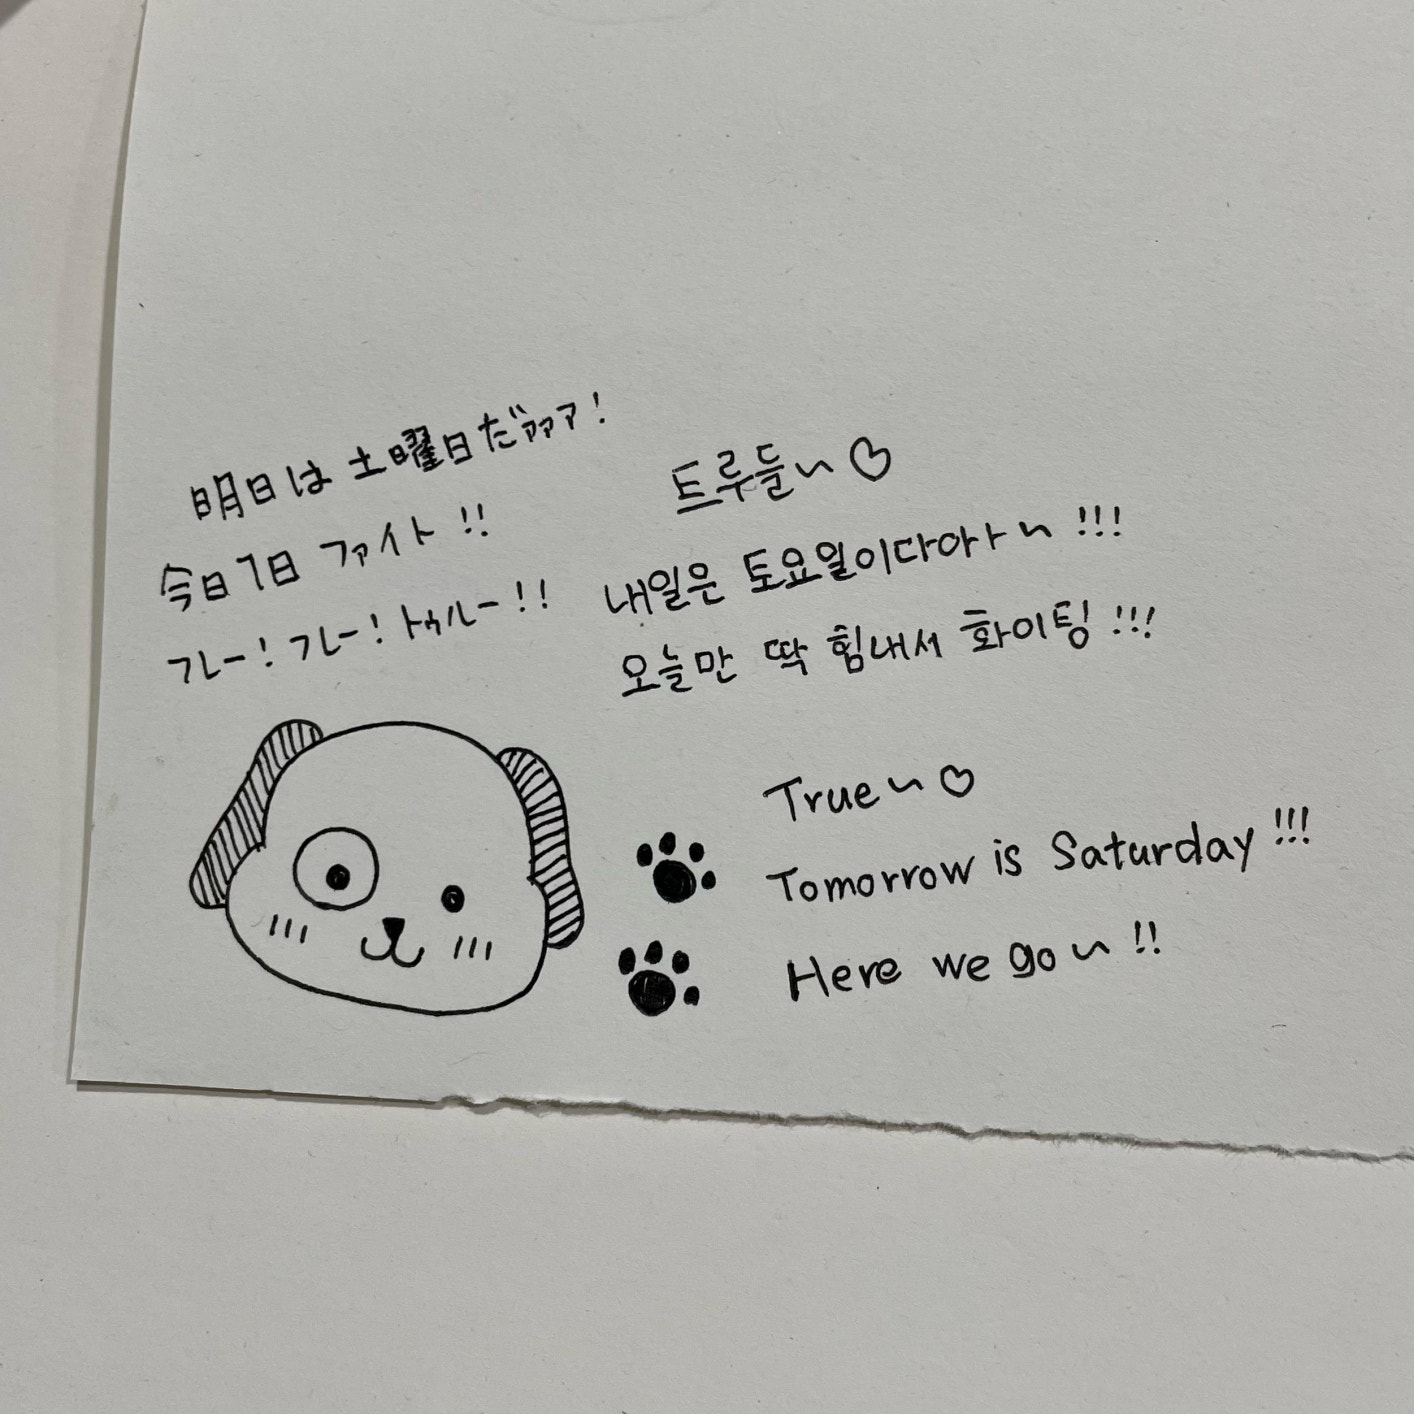 明日は土曜日だァァァ!
今日1日 ファイト!!
フレー!フレー!トゥルー!!
트루들~♡
내일은 토요일이다아ㅏ~!!!
오늘만 딱 힘내서 화이팅!!!
True~♡
Tomorrow is Saturday!!!
Here we go~!!